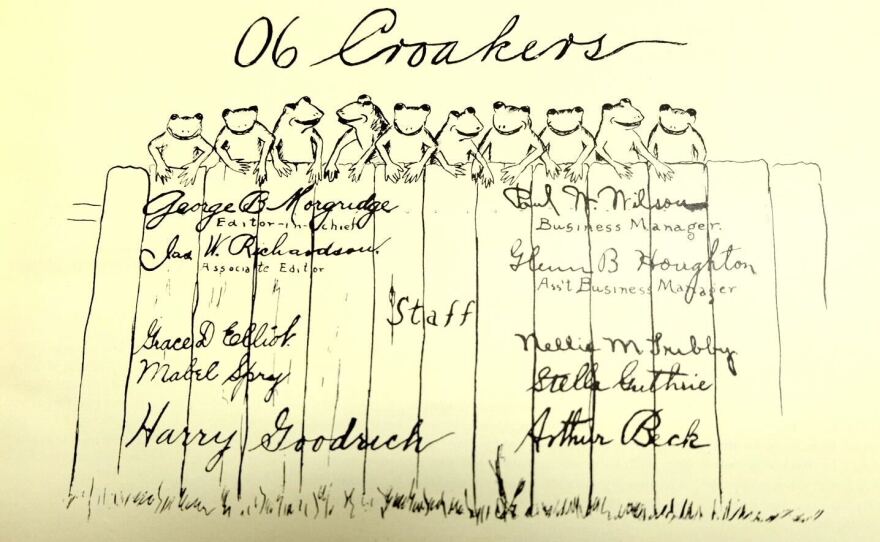 06 Croakers
George B Morgridge
Editor-in-chief
Jas W. Richardson.
Associate Editor
Paul W. Wilson
Business Manager.
Glenn B Houghton
Ass't Business Manager
Staff
Grace D Elliot
Mabel Spry
Harry Goodrich
Nellie M Trubby
Stella Guthrie
Arthur Beck